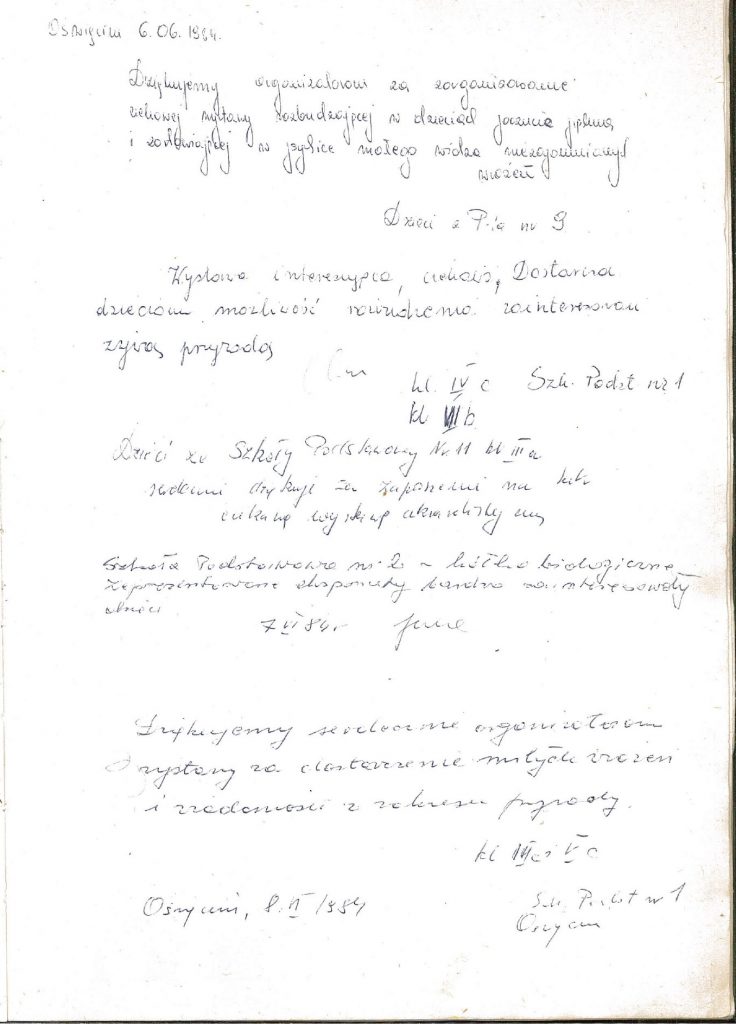 Oświęcim 6.06.1984.
Dziękujemy organizatorom za zorganizowanie
ciekawej wystawy rozbudzającej w dzieciach
i zostawiającej w psychice małego widza niezapomnianych
wrażeń
Dzieci z P-la nr 9
Wystawa interesująca, ciekawa, Dostarcza
dzieciom możliwość rozwidzenia zainteresowań
żywą przyrodą
kl. IV c Szk. Podst nr 1
kl VII b
Dzieci ze Szkoły Podstawowej Nr 11 kl III a
serdecznie dziękują za zaproszenie na tak
ciekawą wystawę akwarystyczną
Szkoła Podstawowa nr 2 - kółko biologiczne
zaprezentowane eksponaty bardzo zainteresowały
dzieci
7 VI 84r.
Dziękujemy serdecznie organizatorom
wystawy za dostarczenie miłych wrażeń
i wiadomości z zakresu przyrody.
kl III c i V c
Oświęcim, 8.VI 1984
Szk. Podst nr 1
Oświęcim